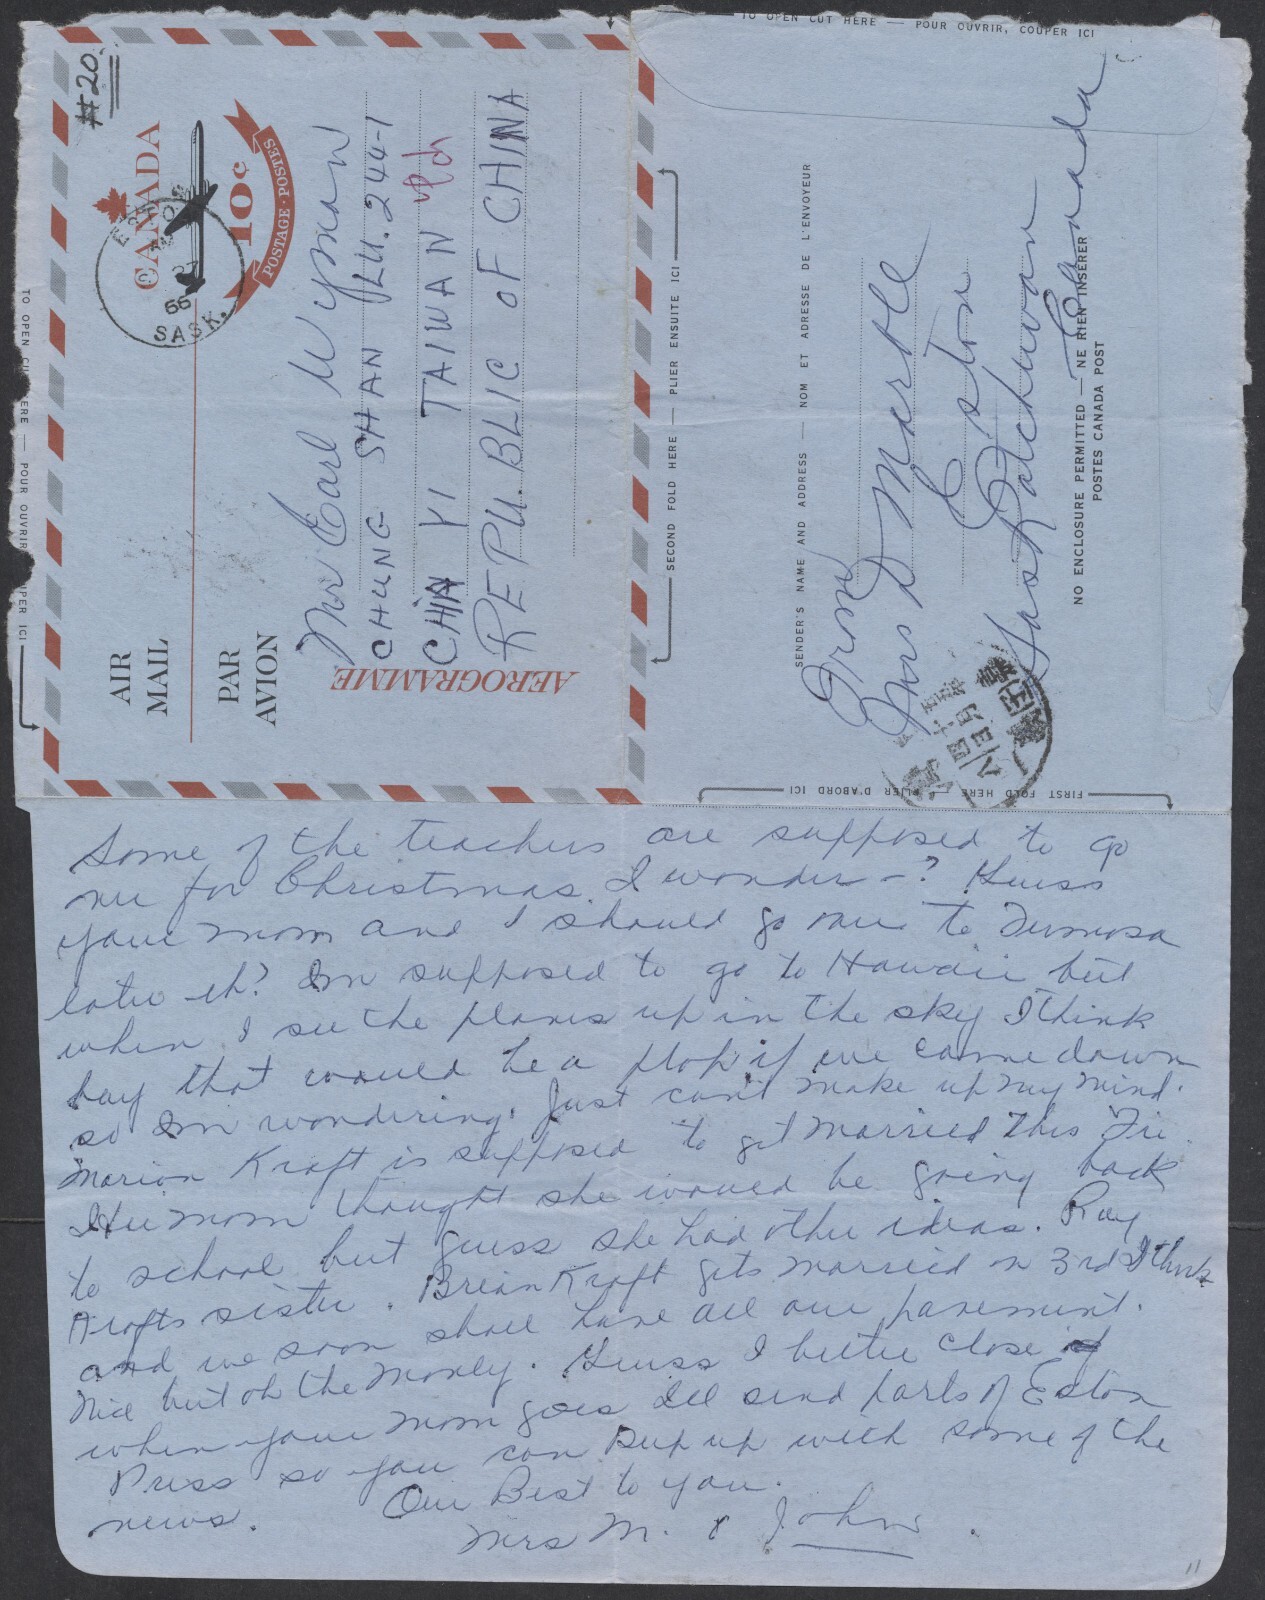 TO OPEN CUT HERE — POUR OUVRIR, COUPER ICI
#20
CANADA
10¢
POSTAGE·POSTES
ESTON
27
66
SASK.
AIR
MAIL
PAR
AVION
AEROGRAMME
Mr Earl Wyman
CHUNG SHAN LU. 244-1
CHIA YI TAIWAN
REPU.BLIC OF CHINA
TO OPEN CUT HERE — POUR OUVRIR, COUPER ICI
SECOND FOLD HERE — PLIER ENSUITE ICI
SENDER'S NAME AND ADDRESS — NOM ET ADRESSE DE L'ENVOYEUR
From
Mrs D Martle
Eston
Saskatchewan
Canada
NO ENCLOSURE PERMITTED — NE RIEN INSÉRER
POSTES CANADA POST
FIRST FOLD HERE — PLIER D'ABORD ICI
Some of the teachers are supposed to go
over for Christmas. I wonder -? Guess
your mom and I should go over to Formosa
later eh? Im supposed to go to Hawaii but
when I see the planes up in the sky I think
boy that would be a flop if we came down
so Im wondering. Just can't make up my mind.
Marion Kraft is supposed to get married this Fri.
Her mom thought she would be going back
to school but guess she had other ideas. Ray
Krafts sister. Brian Kraft gets married on 3rd I think
and we soon shall have all our pavement.
Nice but oh the money. Guess I better close
when your mom goes I'll send parts of Eston
Press so you can keep up with some of the
news. Our Best to you.
Mrs M. & John.
11